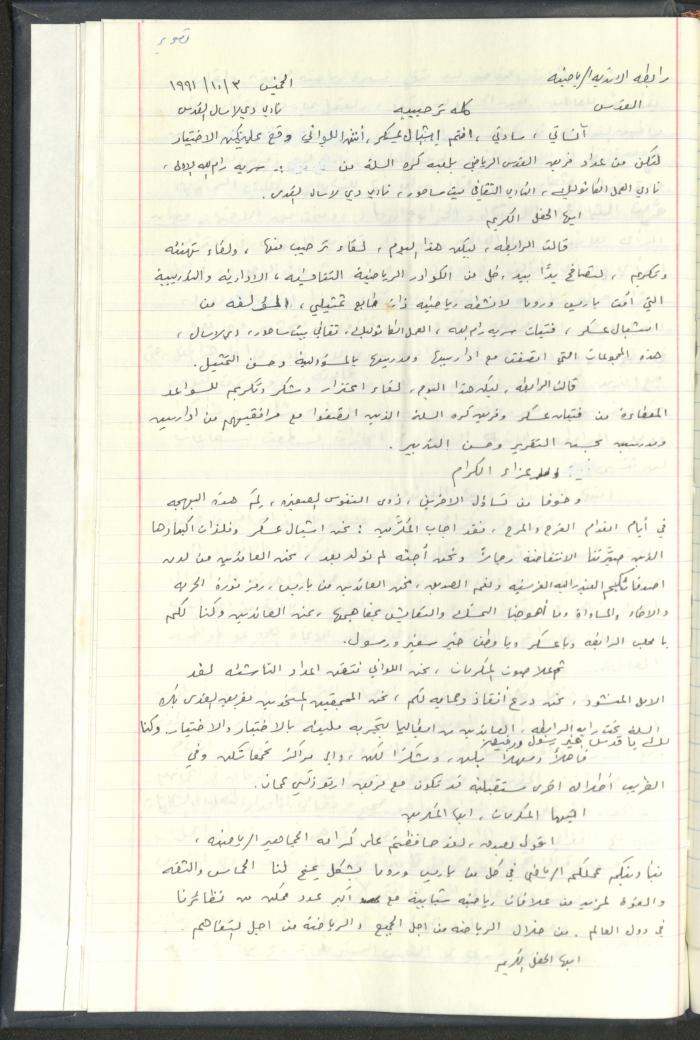 تصوير
رابطة الاندية الرياضية الخميس ٣/١٠/١٩٩١
القدس كلمة ترحيبية نادي دي لاسال القدس
آنساتي، سادتي، افتم اشبال عسكر، أنتن اللواتي وقع عليكن الاختيار
لتكن من عداد فريق القدس الرياضي بلعبة كرة السلة من سرية رام الله الاولى،
نادي العمل الكاثوليكي، النادي الثقافي بيت ساحور، نادي دي لاسال القدس.
ايها الحفل الكريم
قالت الرابطة، ليكن هذا اليوم، لقاء ترحيب منها، ولقاء تهنئة
وتكريم، لتصافح يداً بيد، كل من الكوادر الرياضية التفاوضية، الادارية والتدريبية
التي أمت باريس وروما لانشطة رياضية ذات طابع تمثيلي، من
اشبال عسكر، فتيات سرية رام الله، العمل الكاثوليكي، ثقافي بيت ساحور، دي لاسال،
هذه المجموعات التي اتصفت مع ادارييها ومدربيها بالمسؤولية وحسن التمثيل.
قالت الرابطة، ليكن هذا اليوم، لقاء اعتزاز وشكر وتكريم للسواعد
المعطاءة من فتيان عسكر وفريق كرة السلة الذين اتصفوا مع مرافقيهم من اداريين
ومدربين بحسن التقرير وحسن التدبير.
الاعزاء الكرام
وخوفا من تساؤل الاخرين، ذوي النفوس الصغيرة، لم هذه البهجة
في أيام انعدام الفرح والمرح، فقد اجاب المكرمين: نحن اشبال عسكر وفلذات اكبادها
الذين صيرتنا الانتفاضة رجالاً ونحن أجنة لم تولد بعد، نحن العائدين من لدن
اصدقائكم الفيدرالية الفرنسية ولنعم الصديق، نحن العائدين من باريس، رمز ثورة الحرية
والاخاء والمساواة وما أحوجنا التمسك والتعايش بمفاهيمها، نحن العائدين وكنا لكم
يا محب الرابطة ويا عسكر ويا وطن خير سفير ورسول.
ثم علا صوت المكرمات، نحن اللواتي نتقن اعداد الناشئة لغد
الامل المنشود، نحن درع أنقاذ وحماية لكم، نحن الملتحقين المتحدين بفريق القدس بكرة
السلة تحت راية الرابطة، العائدين من ايطاليا بتجربة مليئة بالاختبار والاختيار وكنا
لك يا قدس خير رسول ورفيق
فأهلاً وسهلاً بكن، وشكراً لكن، والى مراكز تجمعاتكن وفي
القريب أطلالة اخرى مستقبلية قد تكون مع فريق ارثوذكسي عمان.
ايتها المكرمات، ايها المكرمين
اقول بصدق، لقد حافظتم على كرامة الجماهير الرياضية،
بتأديتكم عملكم الرياضي في كل من باريس وروما بشكل يمنح لنا الحماس والثقة
والقوة لمزيد من علاقات رياضية شبابية مع أكبر عدد ممكن من نظائرنا
في دول العالم. من خلال الرياضة من اجل الجميع والرياضة من اجل التفاهم.
ايها الحفل الكريم